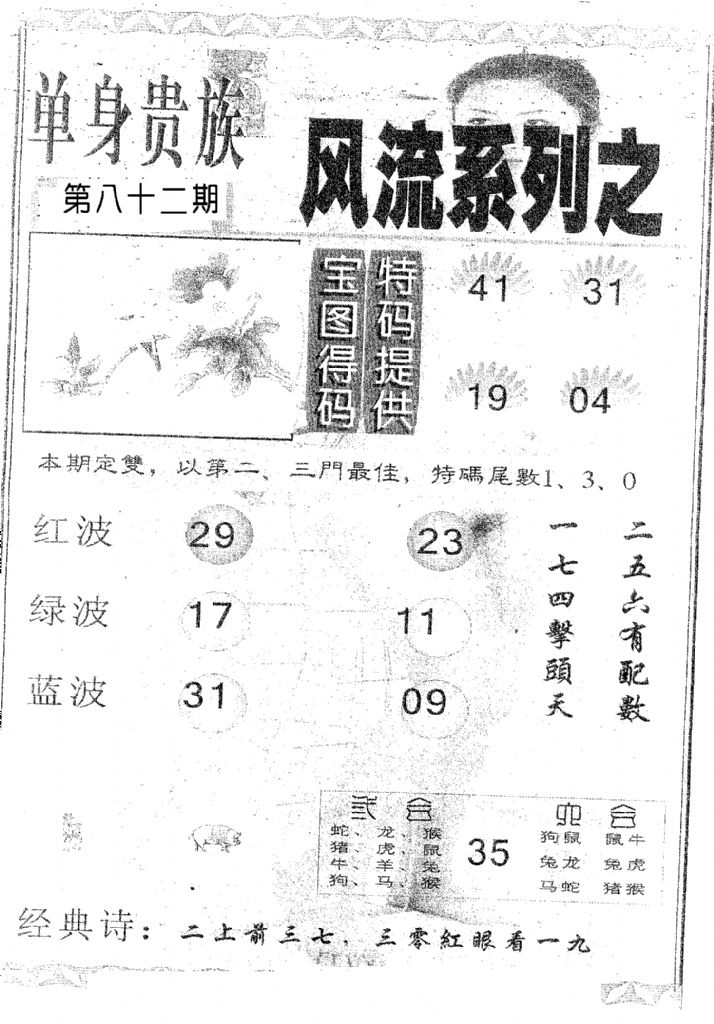 单身贵族
第八十二期
风流系列之
宝图得码
特码提供
41 31
19 04
本期定雙，以第二、三門最佳，特碼尾數1、3、0
红波 29 23
绿波 17 11
蓝波 31 09
二五六有配數
一七四擊頭天
合
蛇、龙、猴
猪、虎、鼠
牛、羊、兔
狗、马、猴
35
六合
狗鼠 鼠牛
兔龙 兔虎
马蛇 猪猴
经典诗：二上前三七，三零紅眼看一九